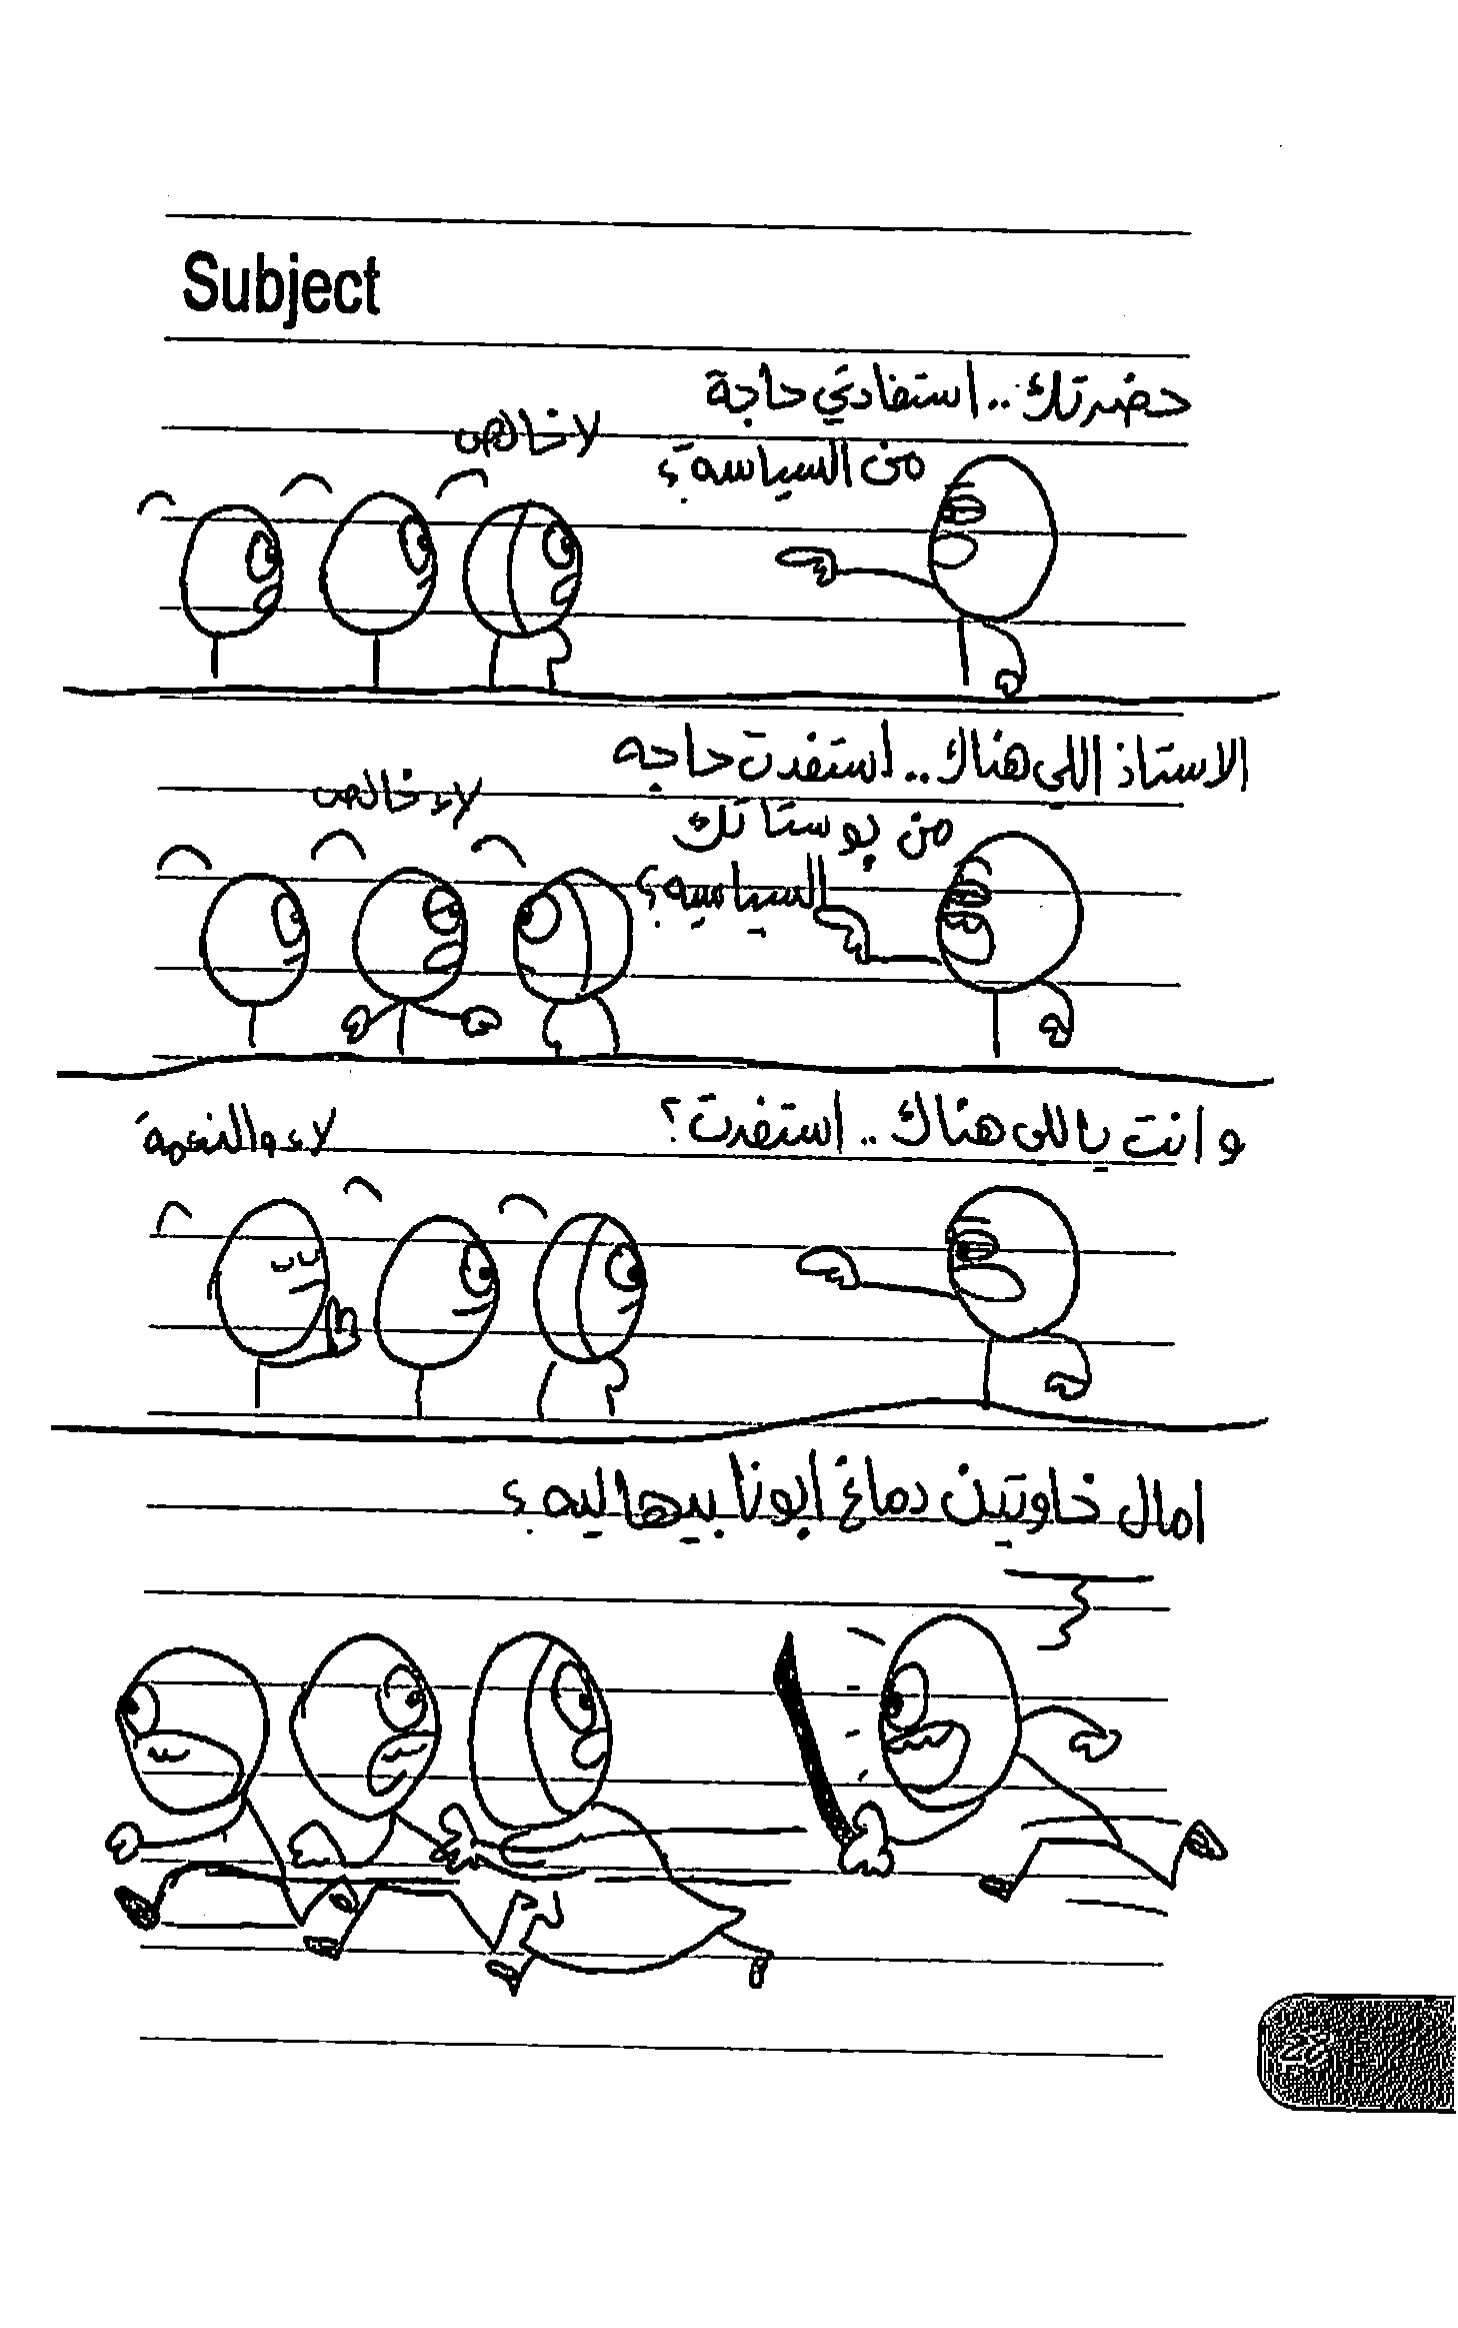 Subject
حضرتك.. استفادتي حاجة
من السياسة؟
لا خالص
الاستاذ اللي هناك.. استفدت حاجه
من بوستاتك
السياسيه؟
لاء خالص
وانت ياللى هناك.. استفدت؟
لاء والنعمة
امال خاوتين دماغ ابونا بيها ليه؟